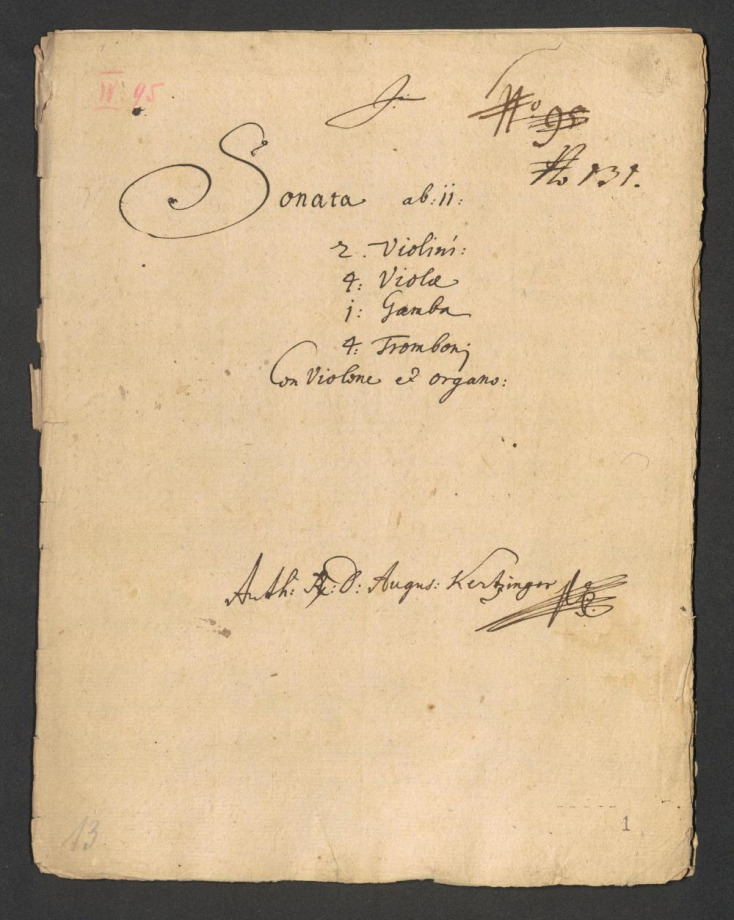 II. 95
J:
No 95
No 131.
Sonata ab: ii:
2. Violini:
4: Violæ
j: Gamba
4: Tromboni
Con Violone et organo:
Auth: R: D: Augus: Kertzinger
13
1